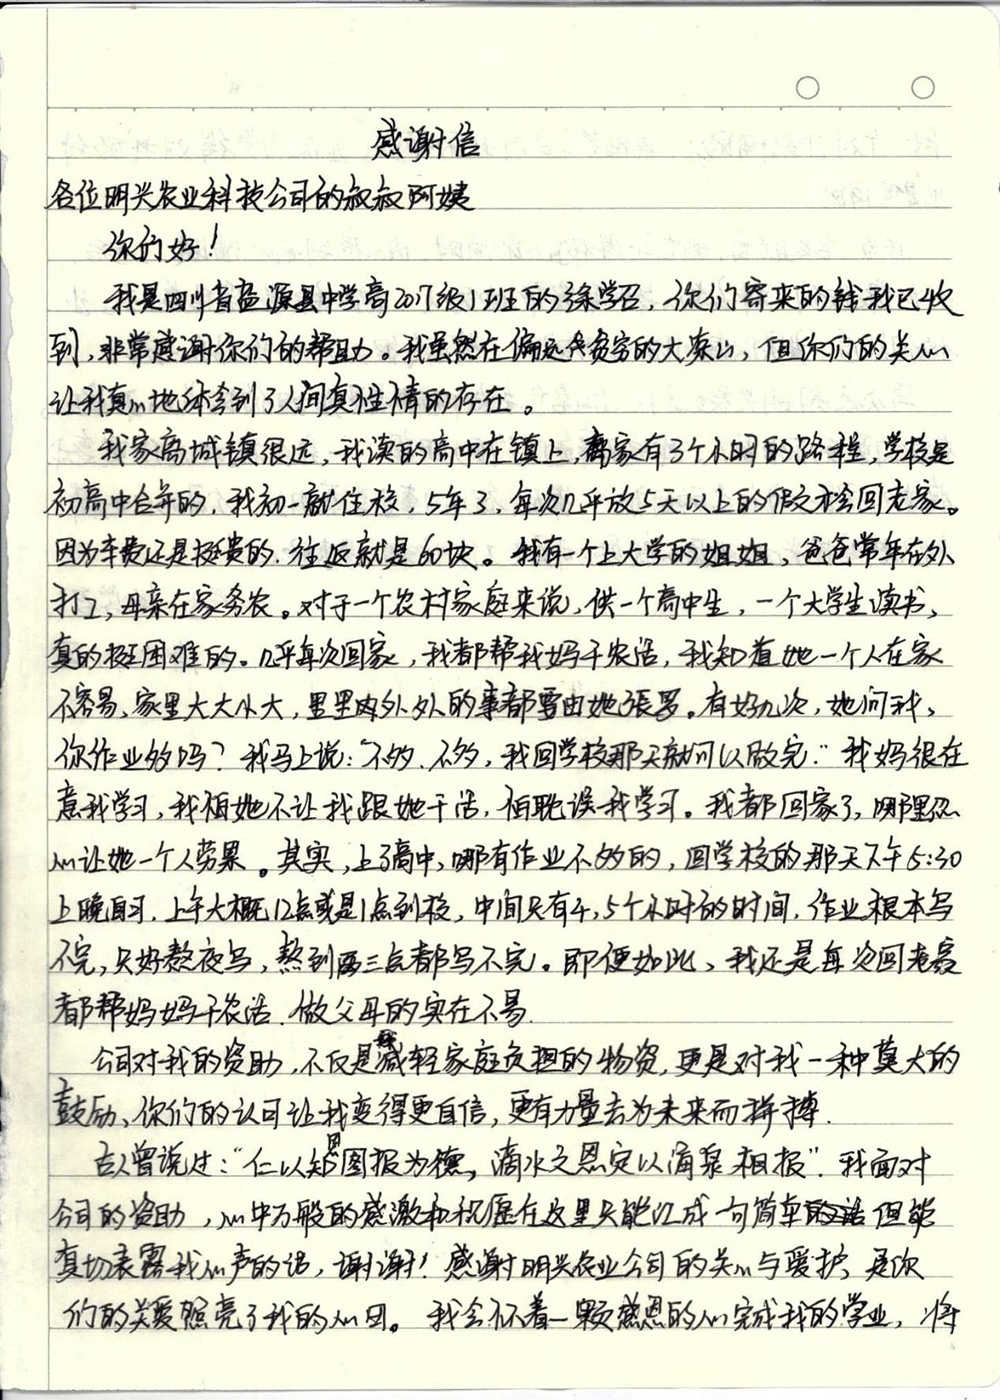 感谢信
各位明兴农业科技公司的叔叔阿姨
你们好！
我是四川省盐源县中学高2017级1班的徐学召，你们寄来的钱我已收
到，非常感谢你们的帮助。我虽然在偏远贫穷的大凉山，但你们的关心
让我真心地体会到了人间真性情的存在。
我家离城镇很远，我读的高中在镇上，离家有3个小时的路程，学校是
初高中合并的，我初一就住校，5年了，每次几乎放5天以上的假才会回老家。
因为车费还是挺贵的，往返就是60块。我有一个上大学的姐姐，爸爸常年在外
打工，母亲在家务农。对于一个农村家庭来说，供一个高中生，一个大学生读书，
真的挺困难的。几乎每次回家，我都帮我妈干农活，我知道她一个人在家
不容易、家里大大小大，里里内外外的事都要由她张罗。有好几次，她问我、
你作业多吗？我马上说：“不多、不多，我回学校那天就可以做完。”我妈很在
意我学习，我怕她不让我跟她干活，怕耽误我学习。我都回家了，哪里忍
心让她一个人劳累。其实，上了高中，哪有作业不多的，回学校的那天下午5:30
上晚自习，上午大概12点或是1点到校，中间只有4,5个小时的时间，作业根本写
不完，只好熬夜写，熬到两三点都写不完。即便如此、我还是每次回老家
都帮妈妈干农活、做父母的实在不易.
公司对我的资助，不仅是减轻家庭负担的物资，更是对我一种莫大的
鼓励、你们的认可让我变得更自信，更有力量去为未来而拼搏.
古人曾说过：“仁以知恩图报为德，滴水之恩定以涌泉相报”. 我面对
公司的资助，心中万般的感激和祝愿在这里只能汇成一句简单的话但能
真切表露我心声的话，谢谢！感谢明兴农业公司的关心与爱护，是你
们的关爱照亮了我的心田。我会怀着一颗感恩的心完成我的学业，将